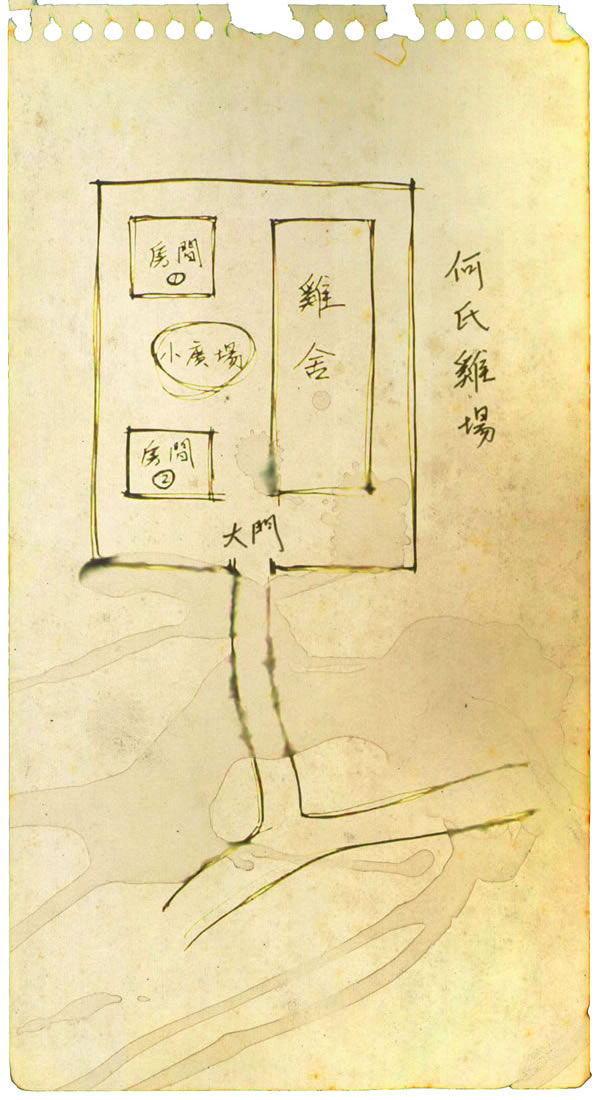 何氏雞場
房間
①
雞舍
小廣場
房間
②
大門